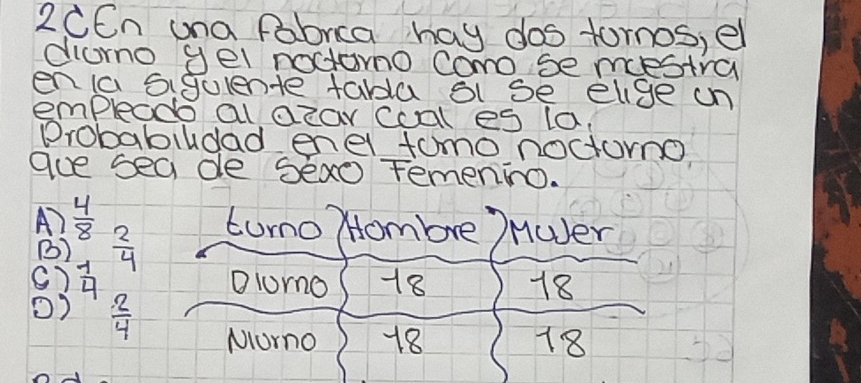 2 ¿En una fabrica hay dos turnos, el
diurno y el nocturno como se muestra
en la siguiente tabla si se elige un
empleado al azar cual es la
Probabilidad en el turno nocturno
que sea de sexo Femenino.
A) 4/8
B) 2/4
C) 1/4
D) 2/4
turno Hombre Mujer
Diurno 18 18
Niurno 18 18